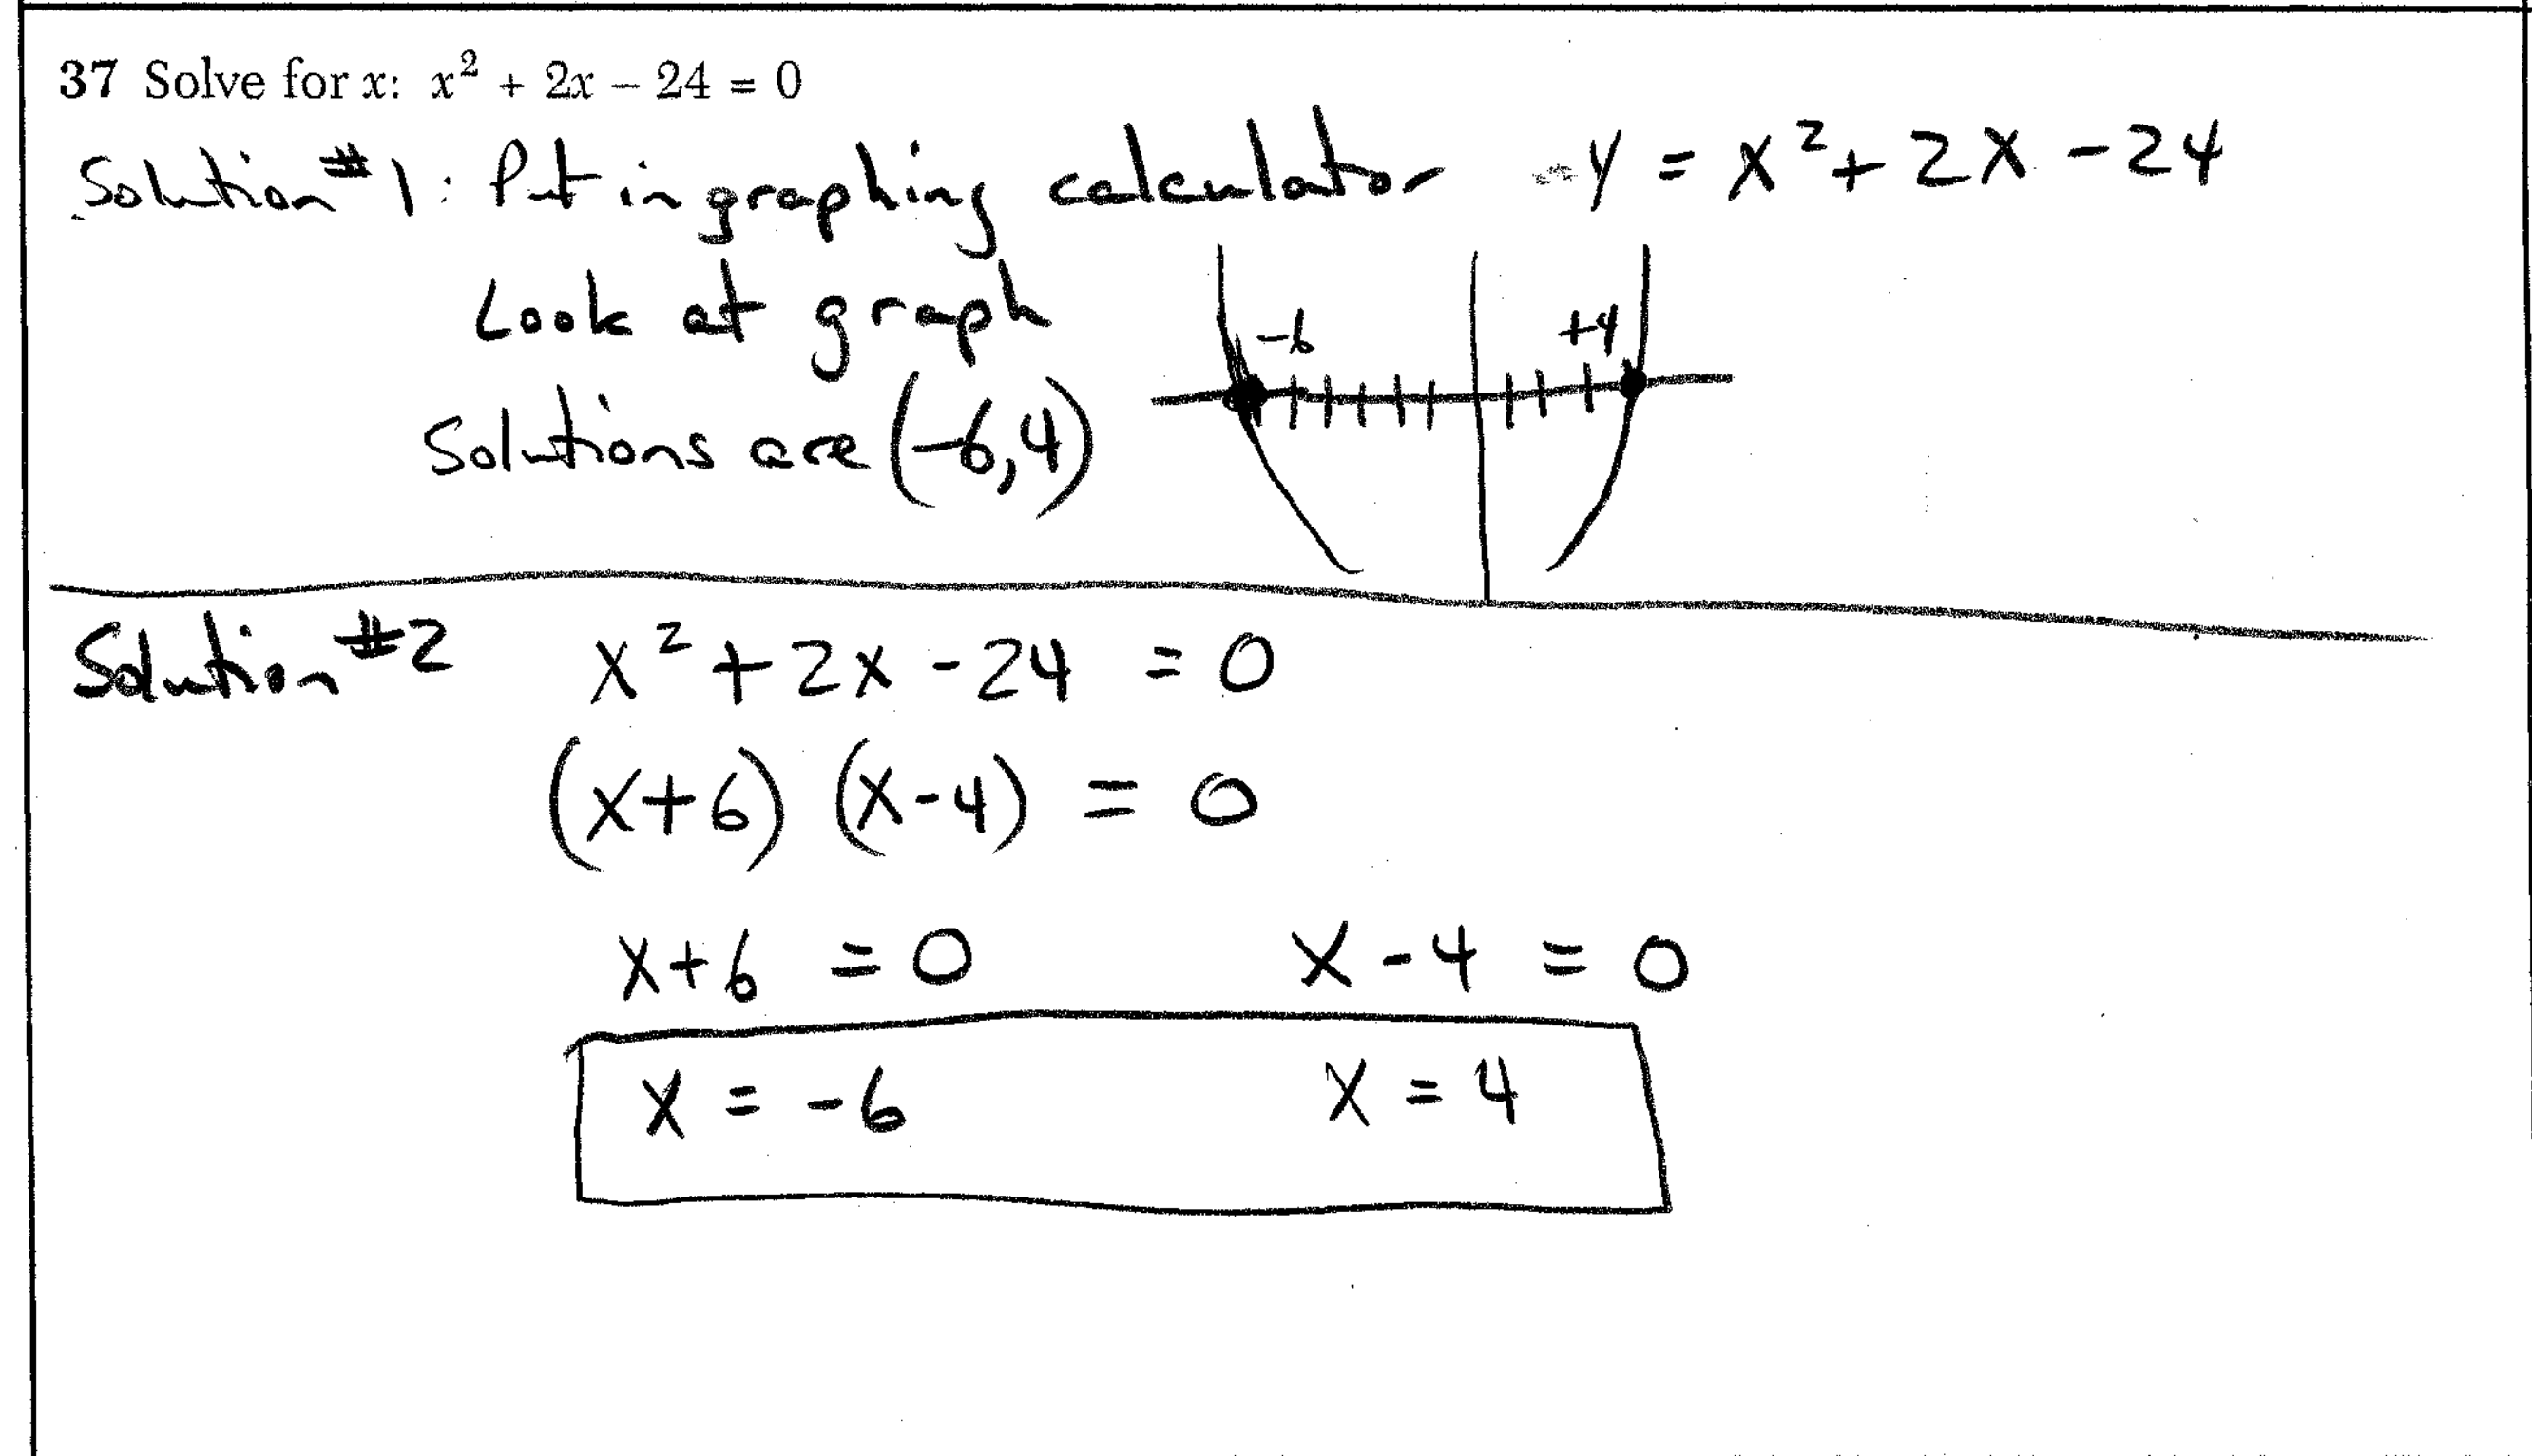 37 Solve for x: x² + 2x – 24 = 0
Solution #1: Put in graphing calculator y = x² + 2x - 24
Look at graph
-6 +4
Solutions are (-6,4)
Solution #2 x² + 2x - 24 = 0
(x+6) (x-4) = 0
x+6 = 0 x - 4 = 0
x = -6 x = 4